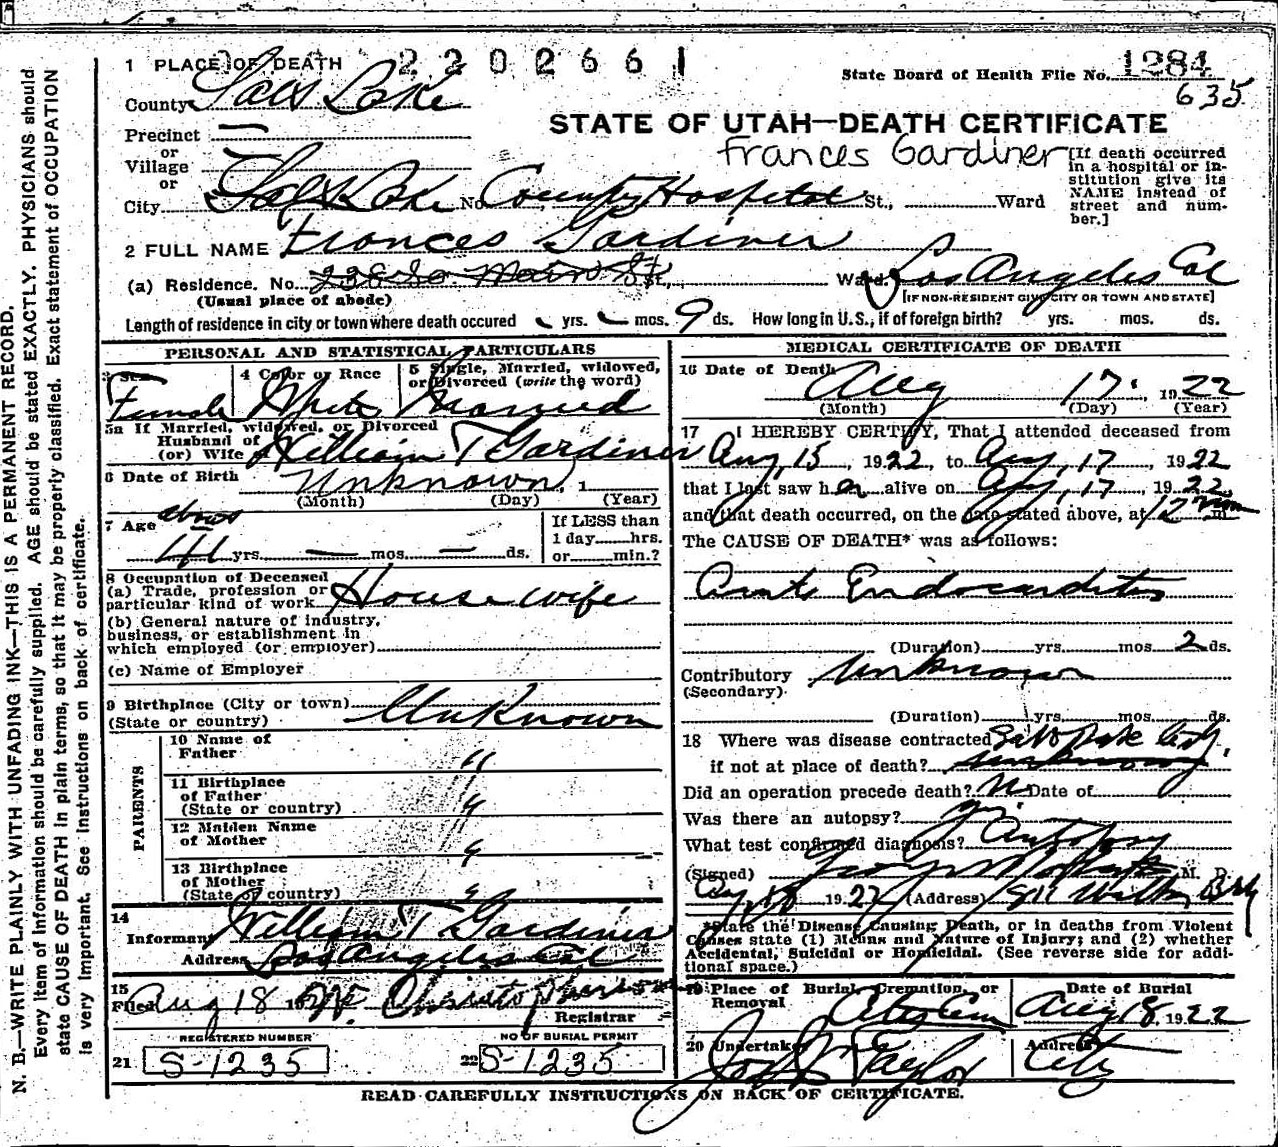 1 PLACE OF DEATH 2 2 0 2 6 6 1
State Board of Health File No. 1284
635
County Salt Lake
STATE OF UTAH—DEATH CERTIFICATE
Precinct —
or
Village
or
Frances Gardiner
[If death occurred in a hospital or institution give its NAME instead of street and number.]
City Salt Lake No. County Hospital St., Ward
2 FULL NAME Frances Gardiner
(a) Residence. No. 238 So. Main St., Ward. Los Angeles Cal
(Usual place of abode) [IF NON-RESIDENT GIVE CITY OR TOWN AND STATE]
Length of residence in city or town where death occured yrs. mos. 9 ds. How long in U.S., if of foreign birth? yrs. mos. ds.
PERSONAL AND STATISTICAL PARTICULARS
3 Sex Female
4 Color or Race White
5 Single, Married, widowed, or Divorced (write the word) Married
5a If Married, widowed, or Divorced
Husband of
(or) Wife of William T Gardiner
6 Date of Birth Unknown, 1
(Month) (Day) (Year)
7 Age about
44 yrs. — mos. — ds.
If LESS than
1 day hrs.
or min.?
8 Occupation of Deceased
(a) Trade, profession or
particular kind of work House wife
(b) General nature of industry,
business, or establishment in
which employed (or employer)
(c) Name of Employer
9 Birthplace (City or town)
(State or country) Unknown
PARENTS
10 Name of
Father "
11 Birthplace
of Father
(State or country) "
12 Maiden Name
of Mother "
13 Birthplace
of Mother
(State or country) "
14
Informant William T Gardiner
Address Los Angeles Cal
15
Filed Aug 18 19
Registrar
REGISTERED NUMBER NO OF BURIAL PERMIT
21 S-1235 22 S-1235
MEDICAL CERTIFICATE OF DEATH
16 Date of Death Aug 17, 1922
(Month) (Day) (Year)
17 I HEREBY CERTIFY, That I attended deceased from
Aug, 15, 1922, to Aug, 17, 1922
that I last saw her alive on Aug, 17, 1922,
and that death occurred, on the date stated above, at 12 m.
The CAUSE OF DEATH* was as follows:
Acute Endocarditis
(Duration) yrs. mos. 2 ds.
Contributory unknown
(Secondary)
(Duration) yrs. mos. ds.
18 Where was disease contracted Salt Lake City,
if not at place of death? unknown
Did an operation precede death? No Date of
Was there an autopsy? yes
What test confirmed diagnosis? Autopsy
(Signed) M. D.
Aug 18 1922 (Address)
*State the Disease Causing Death, or in deaths from Violent
Causes state (1) Means and Nature of Injury; and (2) whether
Accidental, Suicidal or Homicidal. (See reverse side for additional space.)
19 Place of Burial, Cremation, or
Removal City Cem
Date of Burial
Aug 18, 1922
20 Undertaker Jos. Taylor
Address City
READ CAREFULLY INSTRUCTIONS ON BACK OF CERTIFICATE.
N. B.—WRITE PLAINLY WITH UNFADING INK—THIS IS A PERMANENT RECORD.
Every item of information should be carefully supplied. AGE should be stated EXACTLY. PHYSICIANS should
state CAUSE OF DEATH in plain terms, so that it may be properly classified. Exact statement of OCCUPATION
is very important. See instructions on back of certificate.